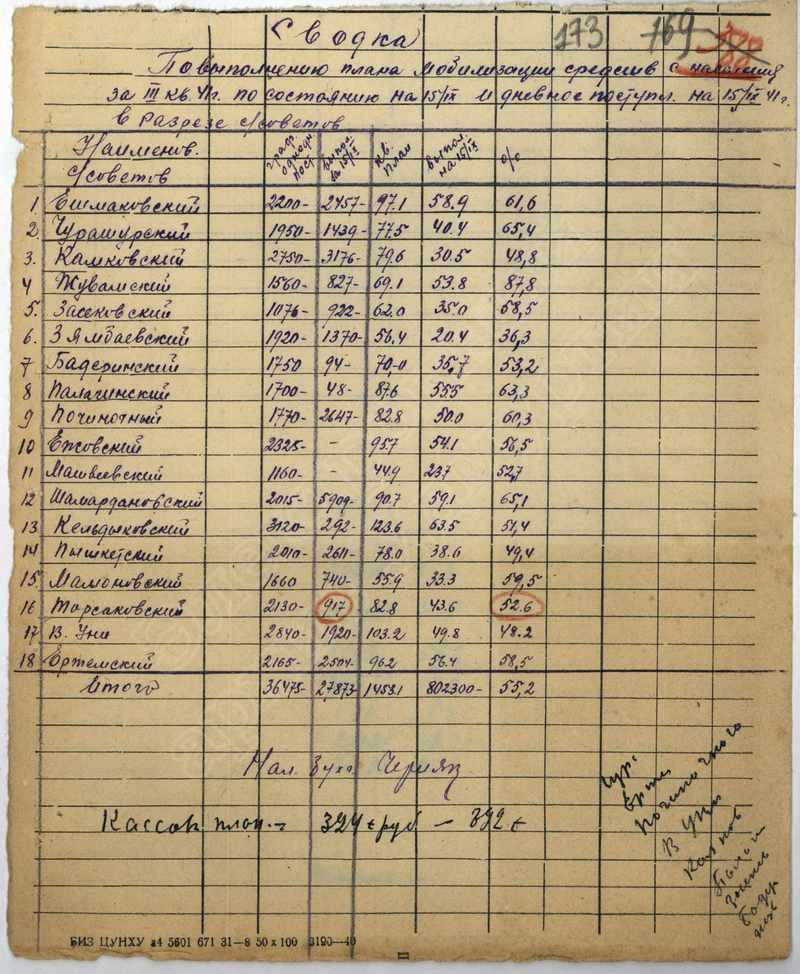 173 169
Сводка
По выполнению плана мобилизации средств с населения
за III кв. 41г. по состоянию на 15/IX и дневное поступл. на 15/IX 41г.
в разрезе с/советов
Наименов. с/советов граф. однодн. пост. выпол. за 15/IX кв. план выпол. на 15/IX о/о
1. Ешмаковский 2200- 2457- 97.1 58.9 61,6
2. Чурашурский 1950- 1439- 77.5 40.4 65,4
3. Камковский 2750- 3176- 79.6 30.5 48,8
4 Жувамский 1560- 827- 69.1 53.8 87,8
5. Засековский 1076- 922- 62.0 35.0 68,5
6. Зямбаевский 1920- 1370- 56.4 20.4 36,3
7 Бадеринский 1750 94- 70,0 35,7 53,2
8 Палагинский 1700- 48- 87.6 55.5 63,3
9 Починочный 1770- 2647- 82.8 50.0 60,3
10 Ежовский 2325- - 95.7 54.1 56,5
11 Матвеевский 1160- - 44.9 23.7 52,7
12 Шамардановский 2015- 5909- 90.7 59.1 65,1
13 Кельдыковский 3120- 292- 123.6 63.5 51,4
14 Пышкетский 2010- 2611- 78.0 38.6 49,4
15. Мамоновский 1660 740- 55.9 33.3 59,5
16 Торсаковский 2130- 917- 82.8 43.6 52.6
17 В. Уни 2840- 1920- 103.2 49.8 48.2
18 Ертемский 2165- 2504- 96.2 56.4 58,5
Итого 36475- 27873- 1453.1 802300- 55,2
Нал.
Кассов план - 324 т руб - 392 т
Ертем
Починочного
В Уни
Камков
Бадер
БИЗ ЦУНХУ а4 5601 671 31—8 50 х 100 3190—40